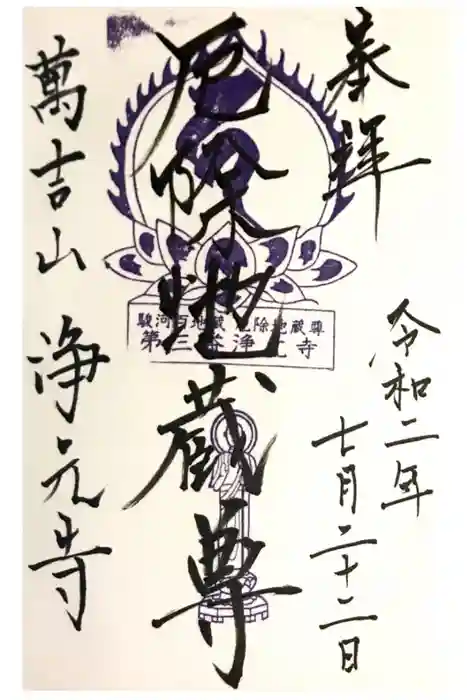 奉拝
令和二年
七月二十二日
厄除地蔵尊
駿河百地蔵 厄除地蔵尊
第三番浄元寺
萬吉山 浄元寺